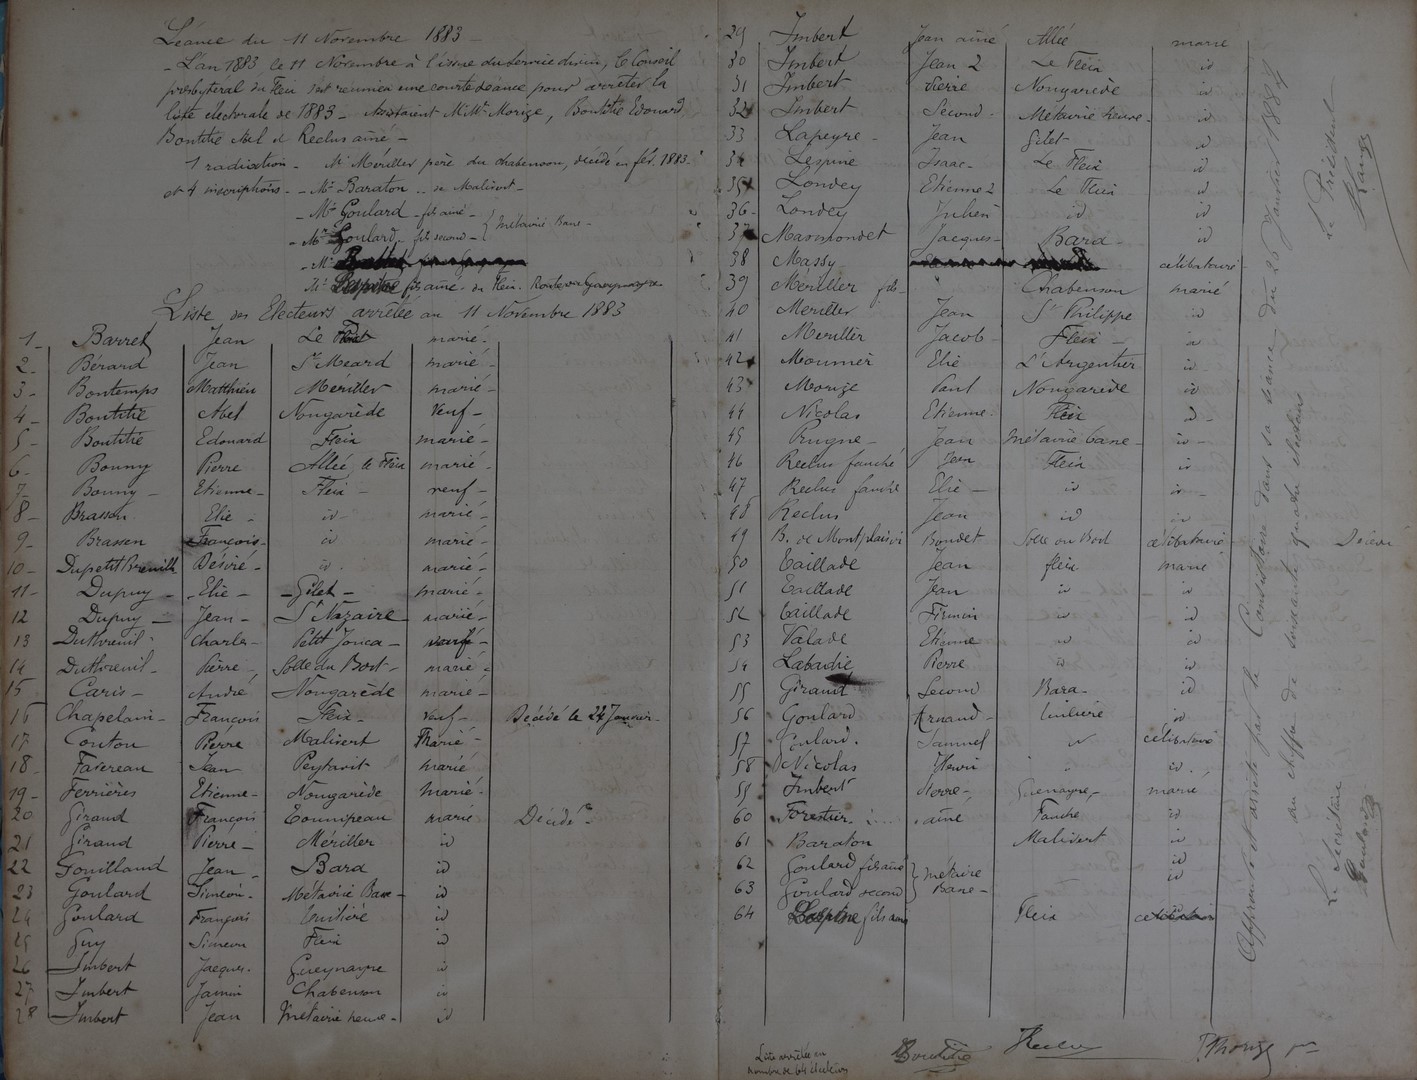 Séance du 11 Novembre 1883 -
- L'an 1883 le 11 Novembre à l'issue du service divin, le Conseil
presbytéral du Fleix s'est réuni en une courte séance pour arrêter la
liste électorale de 1883 - Assistaient M.Mr. Morize, Boutitie Edouard
Boutitie Abel et Reclus aîné -
1 radiation - Mr Mériller père du chabenson, décédé en fév. 1883.
et 4 inscriptions - Mr Baraton - de Malivert -
- Mr Goulard - fils aîné -
- Mr Goulard - fils second - } Métairie Basse -
- Mr
Mr Lespine fils aîné - du Fleix - Route
Liste des Electeurs arrêtée au 11 Novembre 1883
1 - Barret Jean Le Fleix marié -
2 - Bérard Jean St Méard marié -
3 - Bontemps Matthieu Meriller marié -
4 - Boutitie Abel Nougarède Veuf -
5 - Boutitie Edouard Fleix marié -
6 - Bonny Pierre Allée, le Fleix marié -
7 - Bonny - Etienne - Fleix - veuf -
8 - Brassen Elie - id - marié -
9 - Brassen François - id marié -
10 - Dupetit Breuilh Désiré - id - marié -
11 - Dupuy - Elie - Gilet - marié -
12 Dupuy - Jean - St Nazaire - marié -
13 Duthreuil - Charles - Petit Jonca - veuf -
14 Duthreuil - Pierre - Solle du Bost - marié -
15 Caris - André Nougarède marié -
16 Chapelain - François Fleix - Veuf - Décédé le 24 Janvier -
17 Couton Pierre Malivert Marié -
18 - Favereau Jean Peytavit marié
19 - Ferrières Etienne - Nougarède marié -
20 Giraud François marié Décédé
21 Giraud Pierre - Mériller id
22 Gouilland Jean - Bara id
23 Goulard Siméon - Métairie Basse - id
24 Goulard François Tuilière id
25 Guy Simeon Fleix id
26 Imbert Jacques - Gueynayre id
27 Imbert Jamin Chabenson id
28 Imbert Jean Métairie neuve - id
29 Imbert Jean aîné Allée marié
30 Imbert Jean 2 Le Fleix id
31 Imbert Pierre Nougarède id
32 Imbert Second - Métairie neuve - id
33 Lapeyre - Jean Gilet - id
34 Lespine Isaac - Le Fleix id
35 Londey Etienne 2 Le Fleix id
36 - Londey Julien id id
37 Marmondet Jacques - Bara - id
38 Massy célibataire
39 Mériller fils - Chabenson marié
40 Meriller Jean St Philippe id
41 Meriller Jacob - Fleix - id
42 Mounier Elie L'Argentier id -
43 Morize Paul Nougarède id
44 Nicolas Etienne - Fleix id -
45 Prugne - Jean Métairie basse - id -
46 Reclus fauché Jean Fleix id
47 Reclus fauché Elie - id id -
48 Reclus Jean id id
49 B. de Montplaisir Boudet Solle du Bost célibataire Décédé
50 Taillade Jean fleix marié
51 Taillade Jean id id
52 Taillade Firmin id id
53 Valade Etienne id id
54 Labadie Pierre id id
55 Giraud Second Bara - id
56 Goulard Arnaud - Tuilière id
57 Goulard. Samuel id célibataire
58 Nicolas Henri " id.
59 Imbert Pierre - Gueynayre - marié
60 Forestier - aîné Fauché id
61 Baraton Malivert id
62 Goulard fils aîné id
63 Goulard second } métairie Basse - id
64 Lespine fils aîné Fleix célibataire
Liste arrêtée au
nombre de 64 électeurs
Boutitie Reclus Morize
Approuvé et arrêté par le Consistoire dans sa séance du 20 Janvier 1884
au chiffre de soixante quatre électeurs
Le Secrétaire Le Président